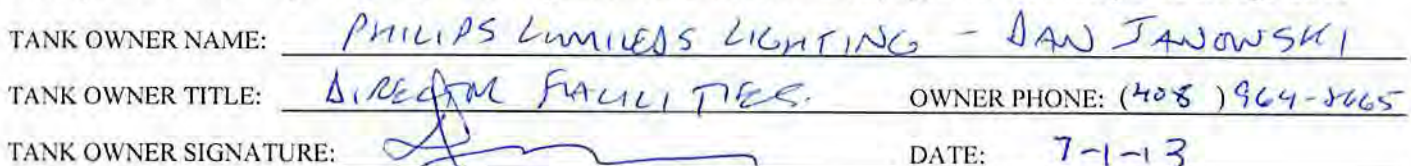 TANK OWNER NAME: PHILIPS LUMILEDS LIGHTING - DAN JANOWSKI
TANK OWNER TITLE: DIRECTOR FACILITIES. OWNER PHONE: (408 ) 964-
TANK OWNER SIGNATURE: DATE: 7-1-13